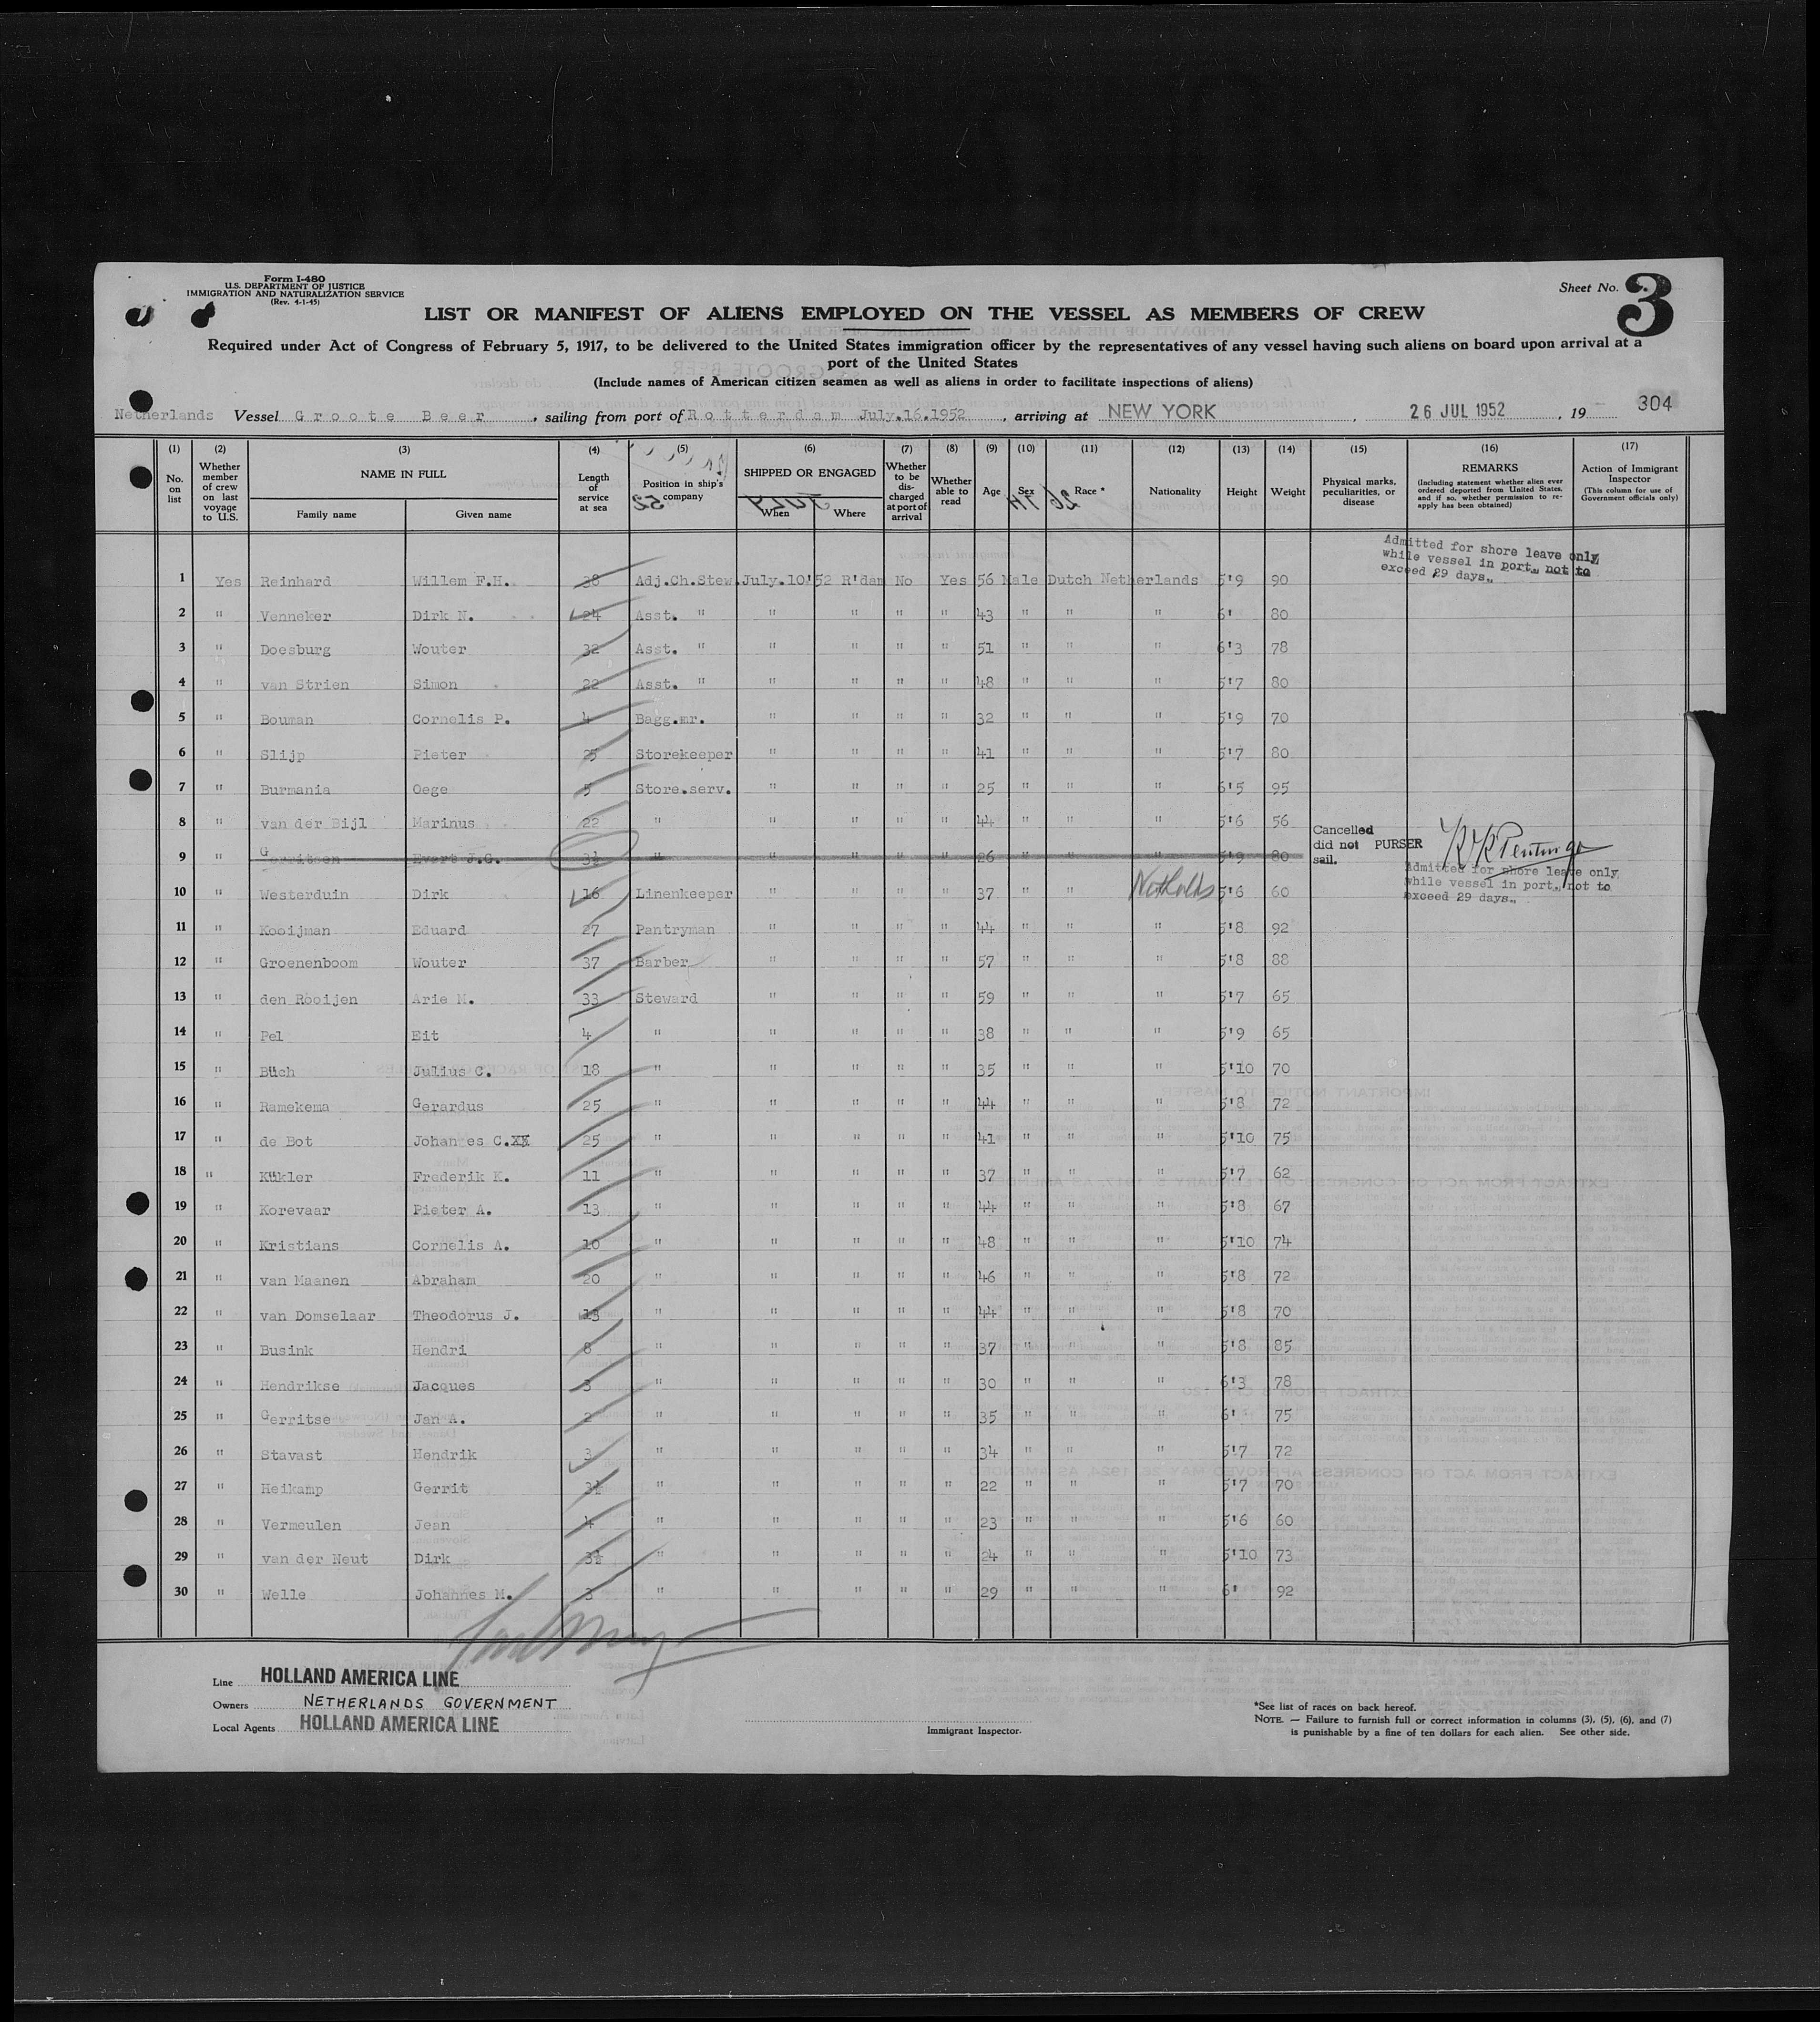 Form I-480
U.S. DEPARTMENT OF JUSTICE
IMMIGRATION AND NATURALIZATION SERVICE
(Rev. 4-1-45)
Sheet No. 3
LIST OR MANIFEST OF ALIENS EMPLOYED ON THE VESSEL AS MEMBERS OF CREW
Required under Act of Congress of February 5, 1917, to be delivered to the United States immigration officer by the representatives of any vessel having such aliens on board upon arrival at a
port of the United States
(Include names of American citizen seamen as well as aliens in order to facilitate inspections of aliens)
Netherlands Vessel Groote Beer, sailing from port of Rotterdam July.16.1952, arriving at NEW YORK, 26 JUL 1952, 19 304
(1) (2) (3) (4) (5) (6) (7) (8) (9) (10) (11) (12) (13) (14) (15) (16) (17)
No. on list
Whether member of crew on last voyage to U.S.
NAME IN FULL
Family name Given name
Length of service at sea
Position in ship's company
SHIPPED OR ENGAGED
When Where
Whether to be discharged at port of arrival
Whether able to read
Age
Sex
Race *
Nationality
Height
Weight
Physical marks, peculiarities, or disease
REMARKS
(Including statement whether alien ever ordered deported from United States, and if so, whether permission to reapply has been obtained)
Action of Immigrant Inspector
(This column for use of Government officials only)
Admitted for shore leave only
while vessel in port., not to
exceed 29 days.,
1 Yes Reinhard Willem F.H. 38 Adj.Ch.Stew. July.10'52 R'dam No Yes 56 Male Dutch Netherlands 5'9 90
2 " Venneker Dirk N. 24 Asst. " " " " " 43 " " " 6' 80
3 " Doesburg Wouter 32 Asst. " " " " " 51 " " " 6'3 78
4 " van Strien Simon 22 Asst. " " " " " 48 " " " 5'7 80
5 " Bouman Cornelis P. 4 Bagg.mr. " " " " 32 " " " 5'9 70
6 " Slijp Pieter 25 Storekeeper " " " " 41 " " " 5'7 80
7 " Burmania Oege 5 Store.serv. " " " " 25 " " " 6'5 95
8 " van der Bijl Marinus 22 " " " " " 44 " " " 5'6 56
9 " Gerritsen Evert J.G. 3½ " " " " " 26 " " " 5'9 80 Cancelled did not sail. PURSER
Admitted for shore leave only
while vessel in port., not to
exceed 29 days.,
10 " Westerduin Dirk 16 Linenkeeper " " " " 37 " " Netherlds 5'6 60
11 " Kooijman Eduard 27 Pantryman " " " " 44 " " " 5'8 92
12 " Groenenboom Wouter 37 Barber " " " " 57 " " " 5'8 88
13 " den Rooijen Arie M. 33 Steward " " " " 59 " " " 5'7 65
14 " Pel Eit 4 " " " " " 38 " " " 5'9 65
15 " Büch Julius C. 18 " " " " " 35 " " " 5'10 70
16 " Ramekema Gerardus 25 " " " " " 44 " " " 5'8 72
17 " de Bot Johannes C.XX 25 " " " " " 41 " " " 5'10 75
18 " Kükler Frederik K. 11 " " " " " 37 " " " 5'7 62
19 " Korevaar Pieter A. 13 " " " " " 44 " " " 5'8 67
20 " Kristians Cornelis A. 10 " " " " " 48 " " " 5'10 74
21 " van Maanen Abraham 20 " " " " " 46 " " " 5'8 72
22 " van Domselaar Theodorus J. 13 " " " " " 44 " " " 5'8 70
23 " Busink Hendri 8 " " " " " 37 " " " 5'8 85
24 " Hendrikse Jacques 3 " " " " " 30 " " " 6'3 78
25 " Gerritse Jan A. 2 " " " " " 35 " " " 6' 75
26 " Stavast Hendrik 3 " " " " " 34 " " " 5'7 72
27 " Heikamp Gerrit 3½ " " " " " 22 " " " 5'7 70
28 " Vermeulen Jean 4 " " " " " 23 " " " 5'6 60
29 " van der Neut Dirk 3½ " " " " " 24 " " " 5'10 73
30 " Welle Johannes M. 3 " " " " " 29 " " " 6' 92
Line HOLLAND AMERICA LINE
Owners NETHERLANDS GOVERNMENT
Local Agents HOLLAND AMERICA LINE
Immigrant Inspector.
*See list of races on back hereof.
NOTE. — Failure to furnish full or correct information in columns (3), (5), (6), and (7)
is punishable by a fine of ten dollars for each alien. See other side.